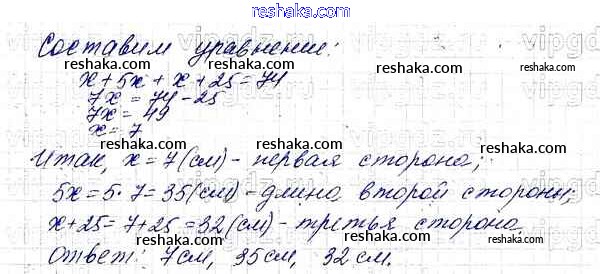 reshaka.com
Составим уравнение:
reshaka.com
reshaka.com
х + 5х + х + 25 = 74
7х = 74 - 25
7х = 49
х = 7
reshaka.com
reshaka.com
reshaka.com
Итак, х = 7 (см) - первая сторона;
5х = 5 · 7 = 35 (см) - длина второй стороны;
reshaka.com
reshaka.com
reshaka.com
х + 25 = 7 + 25 = 32 (см) - третья сторона.
reshaka.com
reshaka.com
Ответ: 7 см, 35 см, 32 см.
reshaka.com
reshaka.com